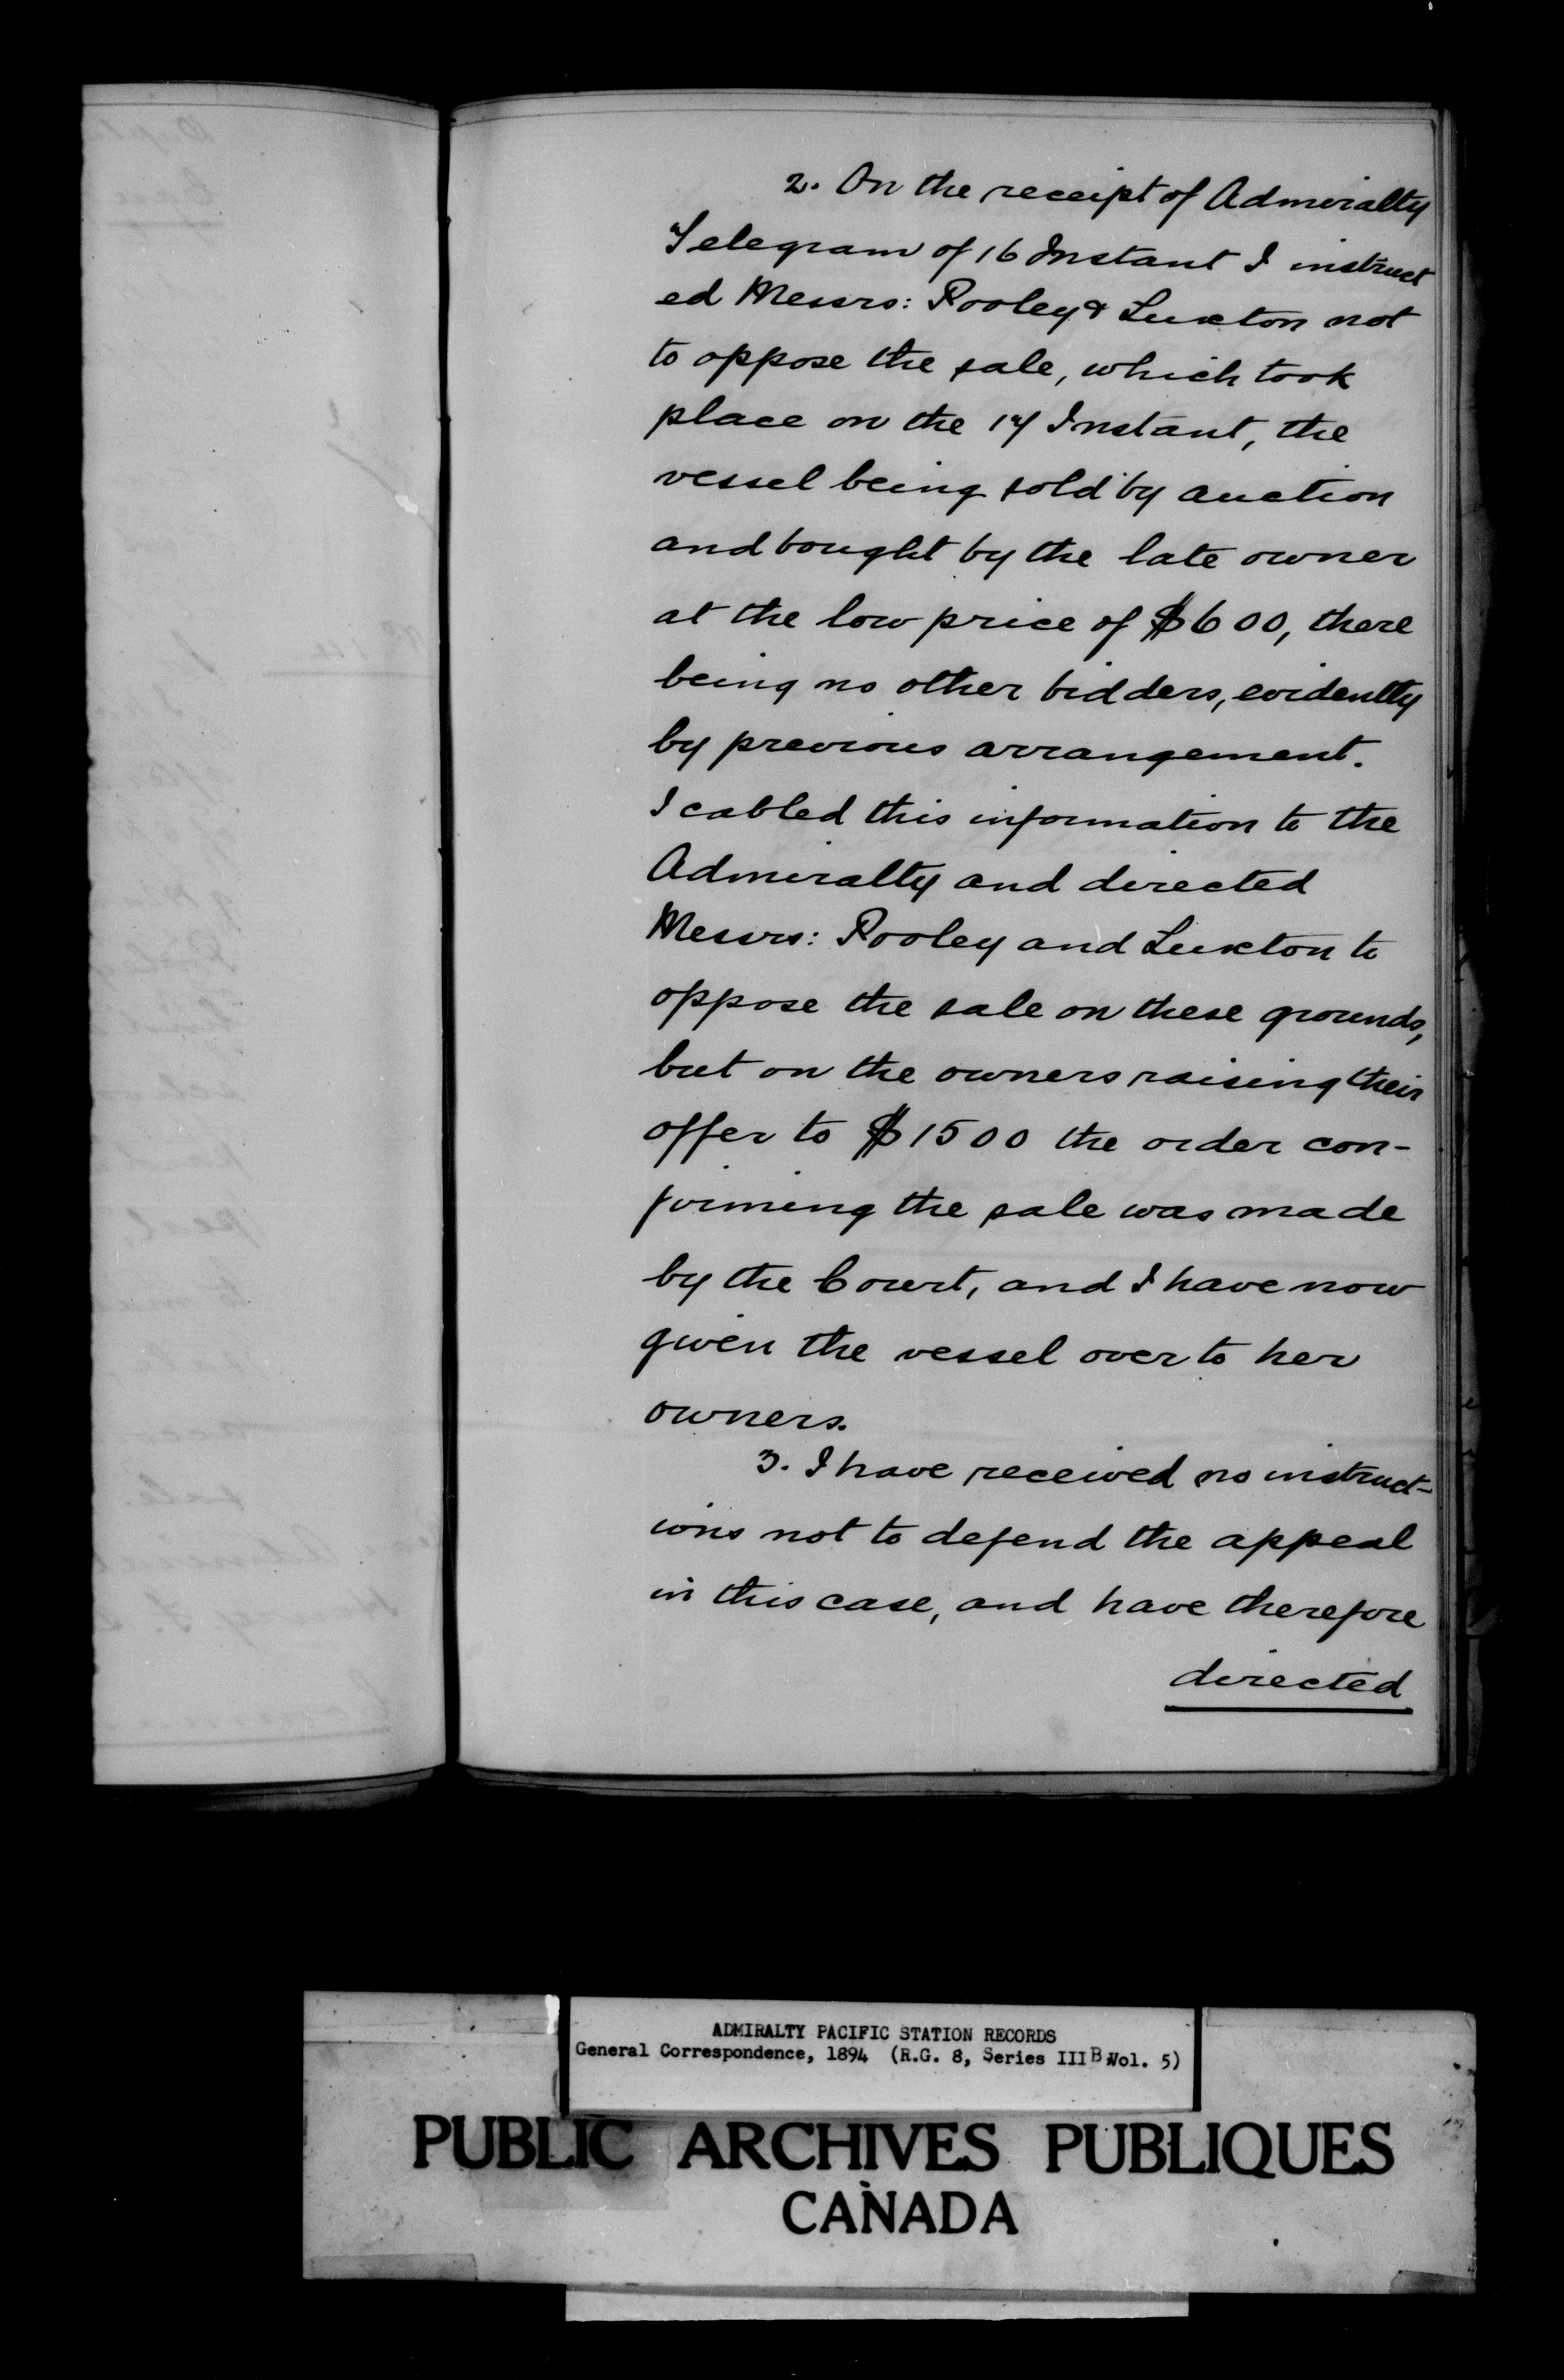 2. On the receipt of Admiralty
Telegram of 16 Instant I instruct
ed Messrs: Pooley & Luxton not
to oppose the sale, which took
place on the 17 Instant, the
vessel being sold by auction
and bought by the late owner
at the low price of $600, there
being no other bidders, evidently
by previous arrangement.
I cabled this information to the
Admiralty and directed
Messrs: Pooley and Luxton to
oppose the sale on these grounds,
but on the owners raising their
offer to $1500 the order con-
firming the sale was made
by the Court, and I have now
given the vessel over to her
owners.
3. I have received no instruct-
ions not to defend the appeal
in this case, and have therefore
directed
ADMIRALTY PACIFIC STATION RECORDS
General Correspondence, 1894 (R.G. 8, Series III B Vol. 5)
PUBLIC ARCHIVES PUBLIQUES
CANADA